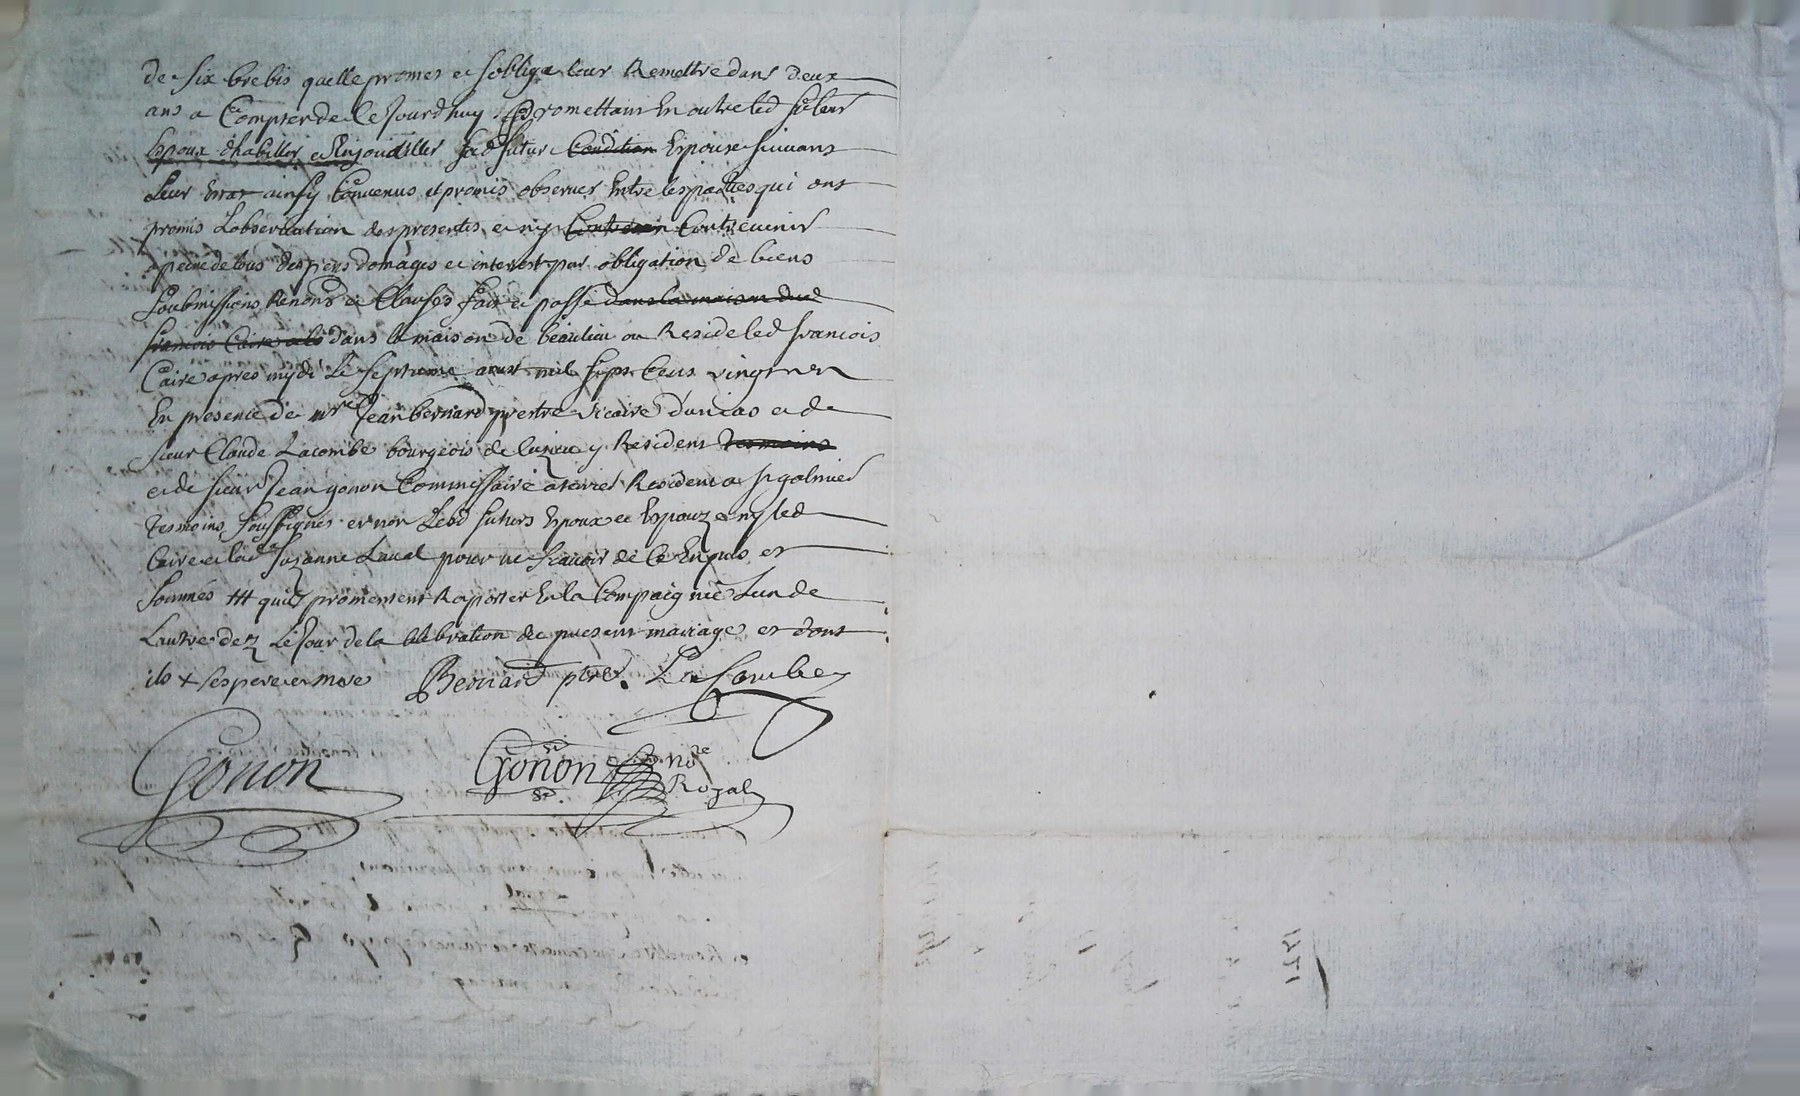 de six brebis quelle promes et sobliga leur Remettre dans deux
ans a Compter de ce Jourdhuy promettant En outre led futeur
Espoux dhabiller et Enjoualler sad future Condition Espouse suivant
Leur ainsy Convenus et promis observer Entre les parties qui ont
promis Lobservation des presentes et ny Contrevenir
apeine de tous despens domages et interest par obligation de biens
soubmissions Renons et Clauses fait et passé dans la maison dud
francois Caire dans la maison de beaulieu ou Reside led francois
Caire apres mydi Le septieme aoust mil sept Cens vingt
En presence de mre Jean bernard prestre vicaire et de
sieur Claude Lacombe bourgeois de y Resident tesmoins
et de sieur Jean gonon Commissaire a terrier Resident a st galmier
tesmoins soussignés et non Lesd futurs Espoux et Espouze ny led
Caire et lad Suzanne Laval pour ne scavoir de ce Enquis et
sommés ttt quils promettent Raporter En la Compaignie Lun de
Lautre dez Le Jour de la celebration du present mariage et dont
ils + ses pere et mere Bernard ptre. La Combe
Gonon Gonon nore
Royal